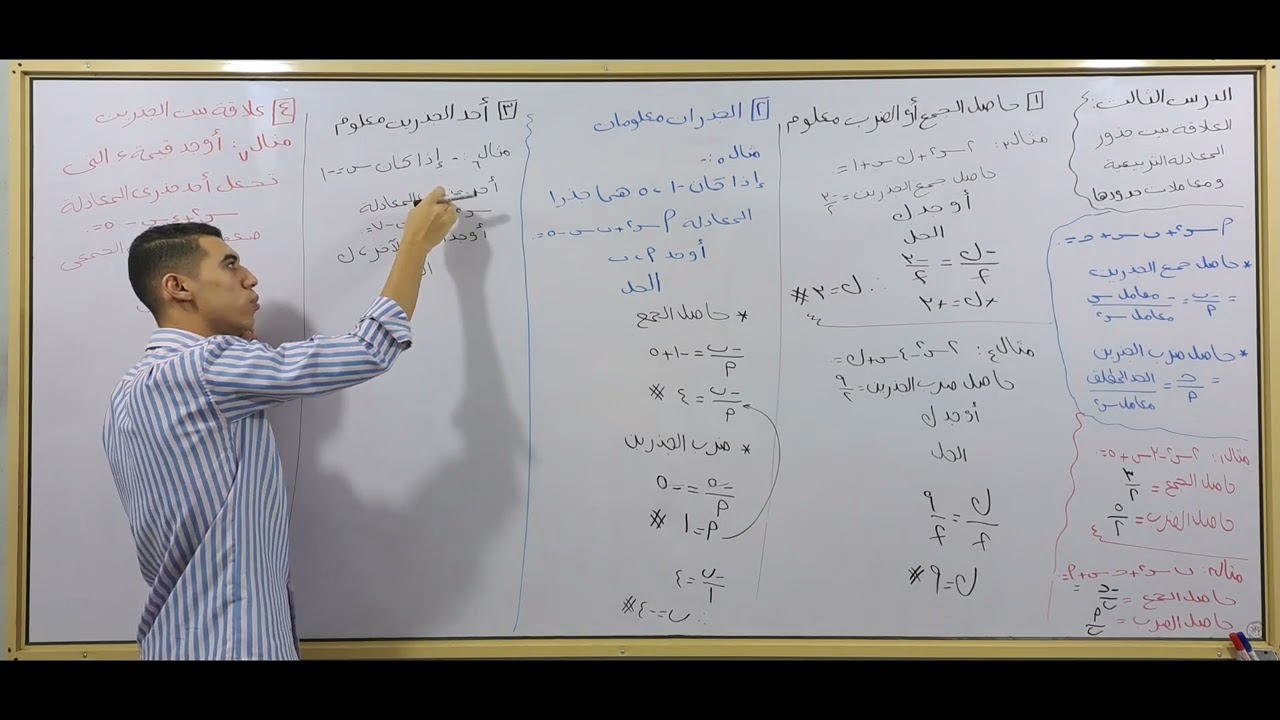 الدرس الثالث:
العلاقة بين جذور
المعادلة التربيعية
ومعاملات حدودها
٢ س٢ + ب س + حـ = ٠
* حاصل جمع الجذرين
= -ب/٢ = -معامل س/معامل س٢
* حاصل ضرب الجذرين
= حـ/٢ = الحد المطلق/معامل س٢
مثال١:
حاصل الجمع = ٣/٢
حاصل الضرب = ٥/٢
مثال٢: ب س٢ + حـ س + ٢ = ٠
حاصل الجمع = -حـ/ب
حاصل الضرب = ٢/ب
١ حاصل الجمع أو الضرب معلوم
مثال٣: ٢ س٢ + ل س + ١ = ٠
حاصل جمع الجذرين = -٣/٢
أوجد ل
الحل
-ل/٢ = -٣/٢
∴ ل = ٣ #
مثال٤: ٢ س٢ - ٤ س + ل = ٠
حاصل ضرب الجذرين = ٩/٢
أوجد ل
الحل
ل/٢ = ٩/٢
ل = ٩ #
٢ الجذران معلومان
مثال٥:
إذا كان -١ ، ٥ هما جذرا
المعادلة ٢ س٢ + ب س - ٥ = ٠
أوجد ٢ ، ب
الحل
* حاصل الجمع
-ب/٢ = -١ + ٥
-ب/٢ = ٤ #
* ضرب الجذرين
-٥/٢ = -٥
٢ = ١ #
-ب/١ = ٤
∴ ب = -٤ #
٣ أحد الجذرين معلوم
مثال٦: إذا كان س = -١
أحد المعادلة
س - ٧ = ٠
أوجد الآخر ، ل
٤ علاقة بين الجذرين
مثال٧: أوجد قيمة ء التى
تجعل أحد جذرى المعادلة
الجمعى